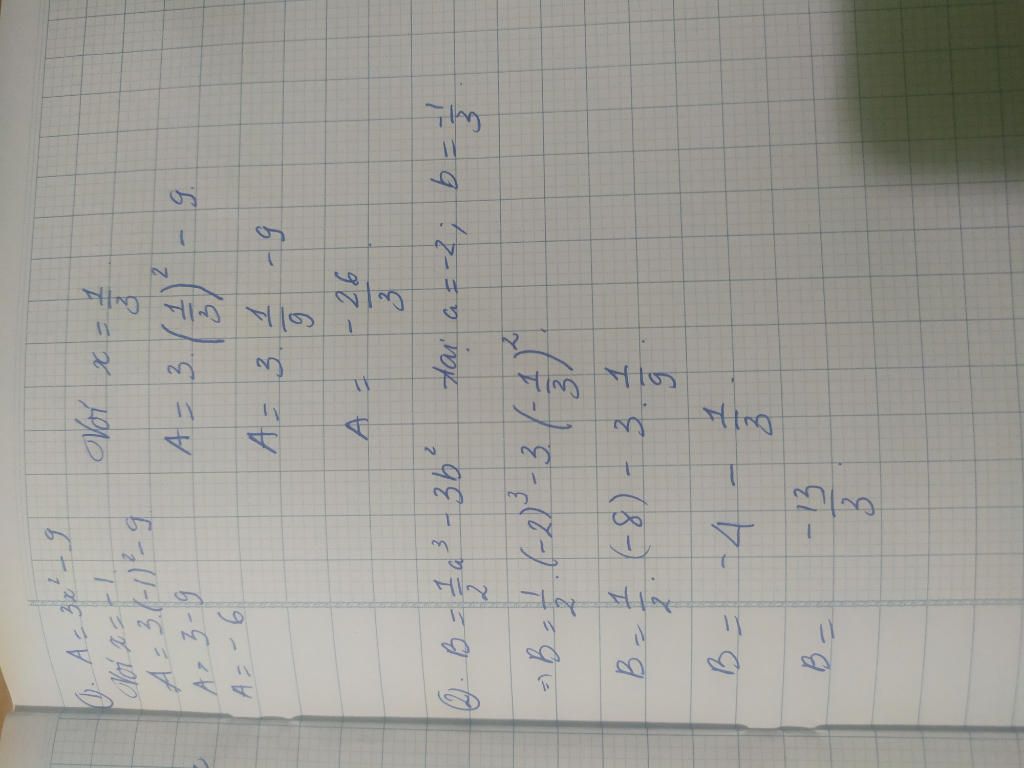 ①. A = 3x² - 9
Với x = -1
A = 3.(-1)² - 9
A = 3 - 9
A = - 6
Với x = 1/3
A = 3. (1/3)² - 9.
A = 3. 1/9 - 9
A = - 26/3.
②. B = 1/2 a³ - 3b² tại a = -2; b = -1/3.
=> B = 1/2.(-2)³ - 3.(-1/3)².
B = 1/2. (-8) - 3. 1/9.
B = - 4 - 1/3.
B = - 13/3.